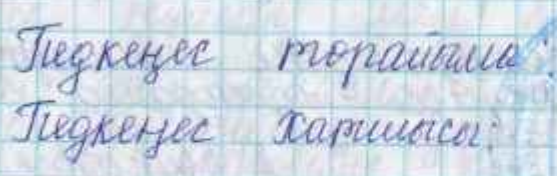 Педкеңес төрайымы:
Педкеңес хатшысы: